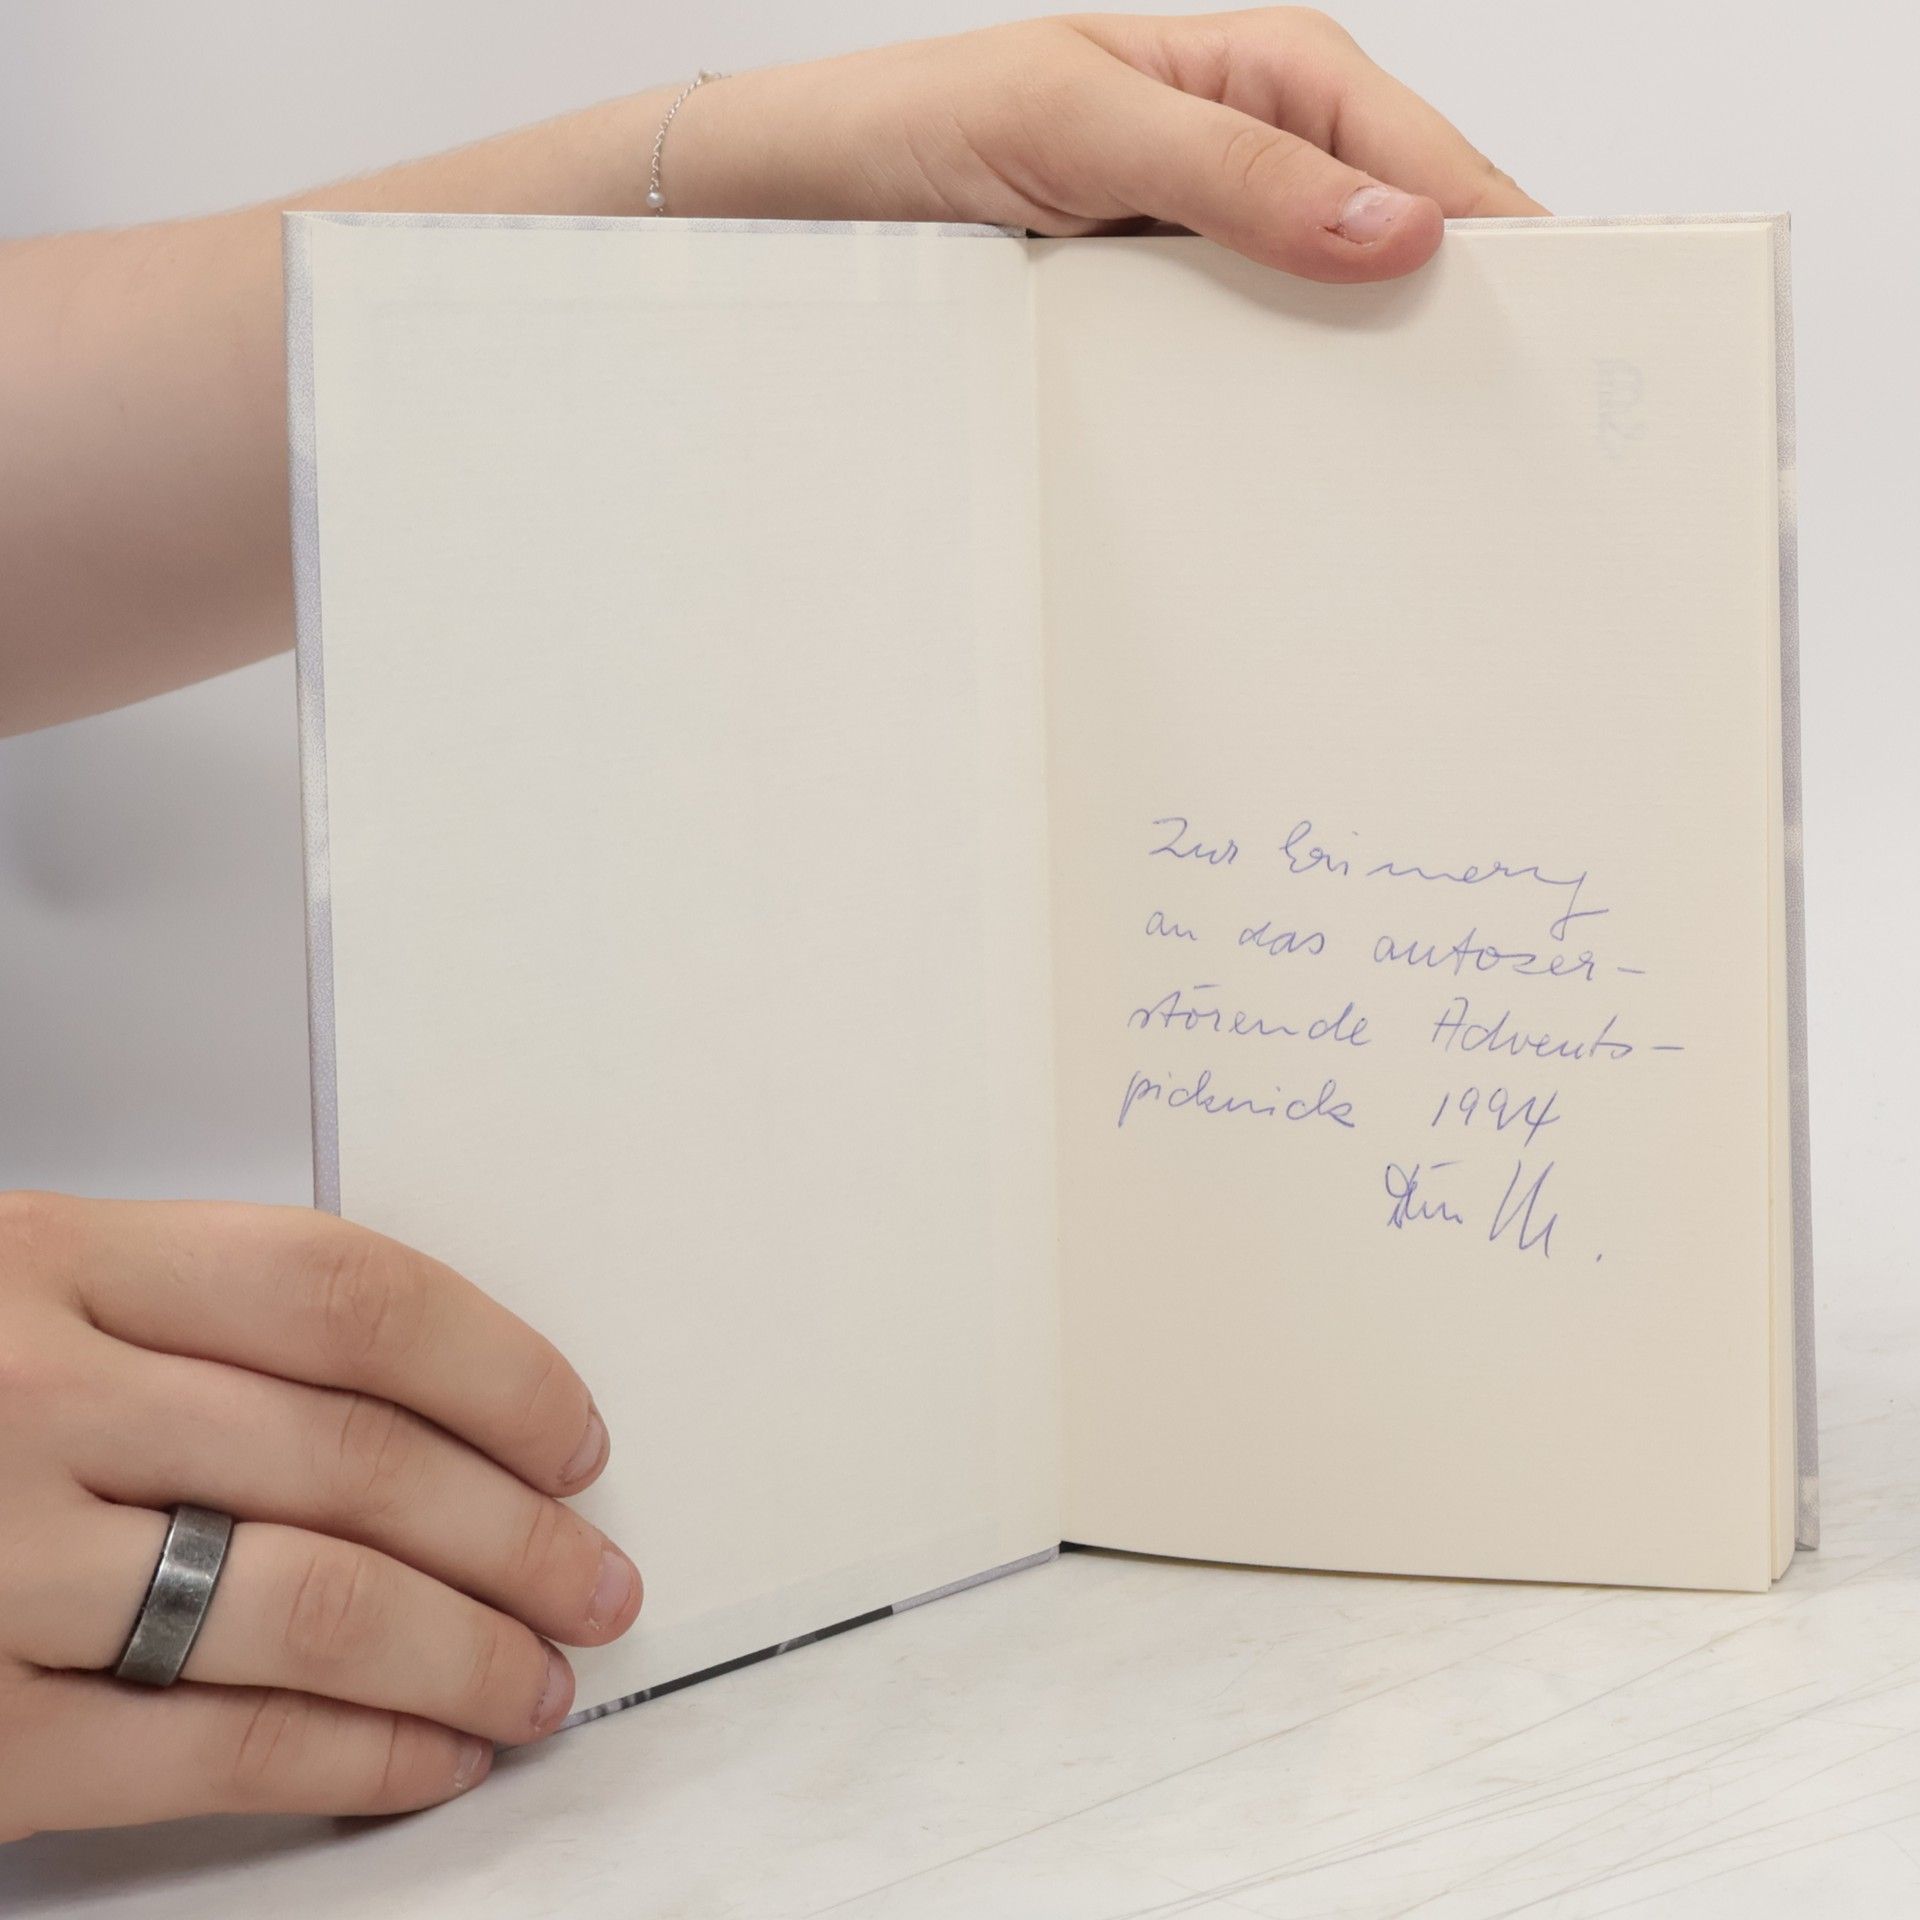 Zur Erinnerung
an das autozer-
störende Advents-
picknick 1994